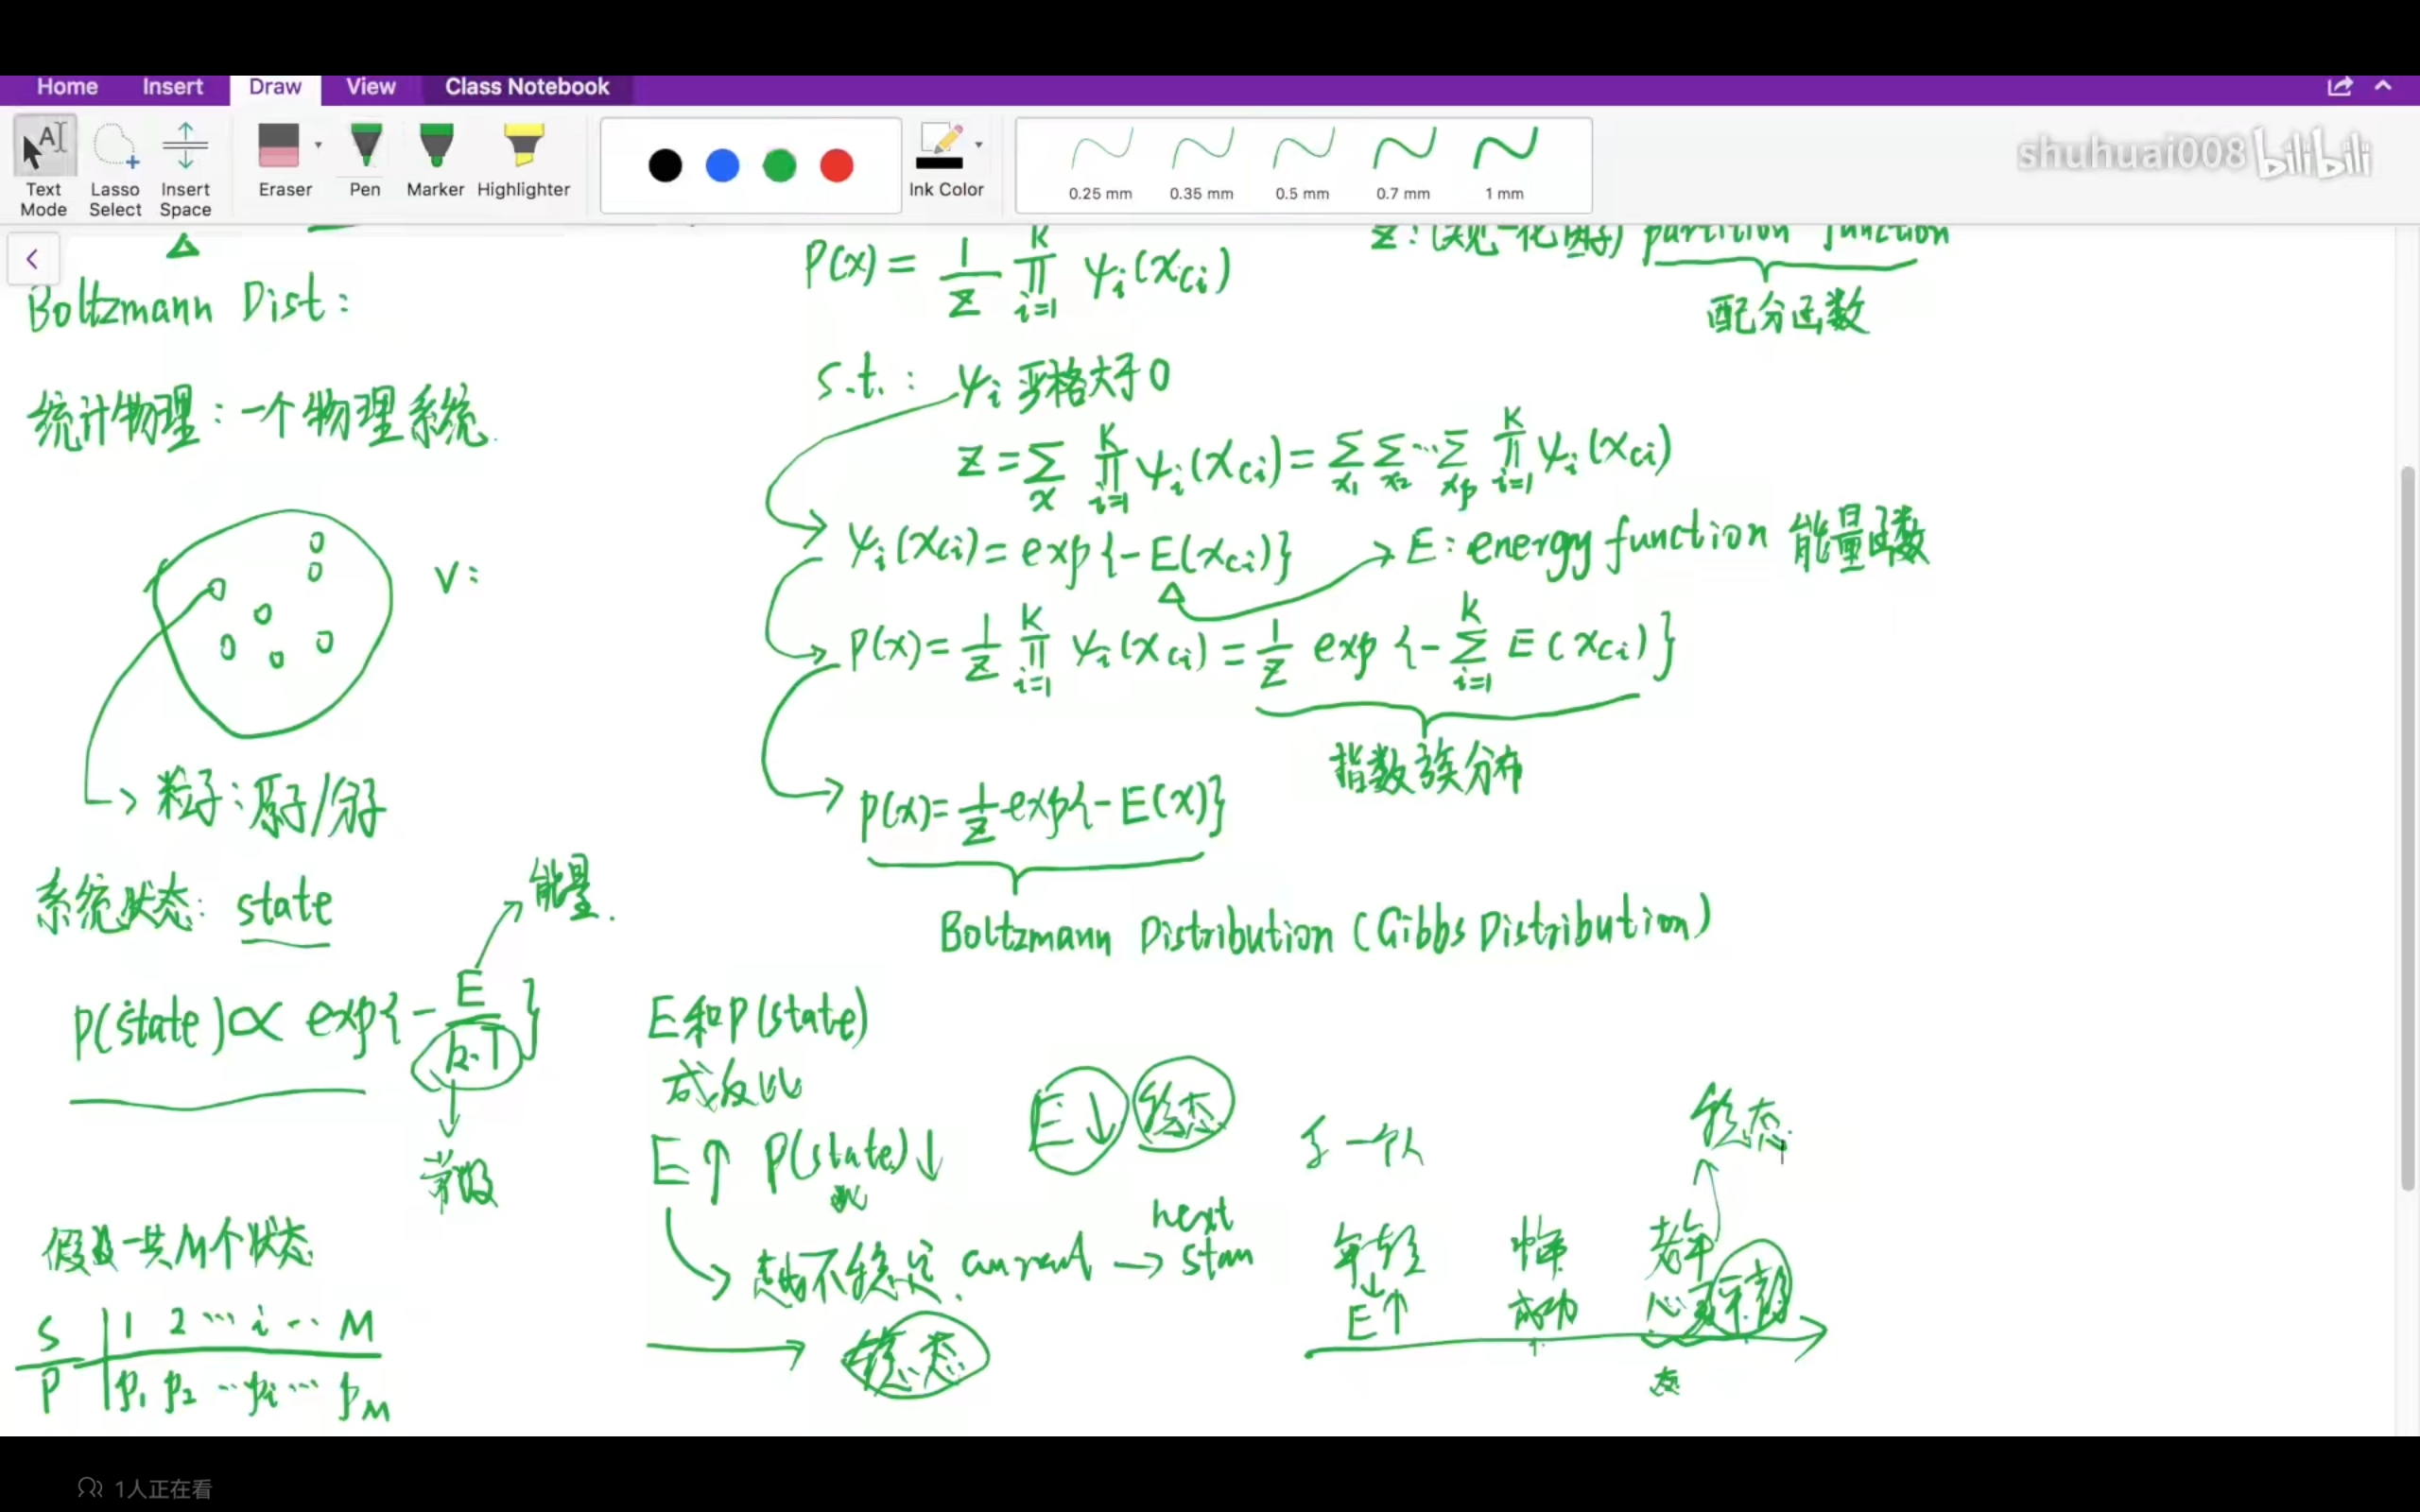 Home Insert Draw View Class Notebook
Text Mode
Lasso Select
Insert Space
Eraser
Pen
Marker
Highlighter
Ink Color
0.25 mm
0.35 mm
0.5 mm
0.7 mm
1 mm
shuhuai008 bilibili
Boltzmann Dist:
统计物理：一个物理系统.
V:
粒子：原子/分子
系统状态: state
能量.
P(state) ∝ exp{-E/k·T}
常数
假设一共M个状态
S 1 2 ... i ... M
P p₁ p₂ ... pᵢ ... p_M
P(x) = 1/Z ∏_{i=1}^{K} ψᵢ(x_{Ci})
Z: partition function
配分函数
s.t.: ψᵢ 严格大于0
Z = Σ_x ∏_{i=1}^{K} ψᵢ(x_{Ci}) = Σ_{x₁} Σ_{x₂} ... Σ_{x_p} ∏_{i=1}^{K} ψᵢ(x_{Ci})
ψᵢ(x_{Ci}) = exp{-E(x_{Ci})}
E: energy function 能量函数
P(x) = 1/Z ∏_{i=1}^{K} ψᵢ(x_{Ci}) = 1/Z exp{-Σ_{i=1}^{K} E(x_{Ci})}
指数族分布
P(x) = 1/Z exp{-E(x)}
Boltzmann Distribution (Gibbs Distribution)
E和P(state)
成反比
E↑ P(state)↓
E↓ 稳态
越不稳定. current → next
稳态
一个人
稳态
年轻 中年 老年
E↑ 成功
态
1人正在看